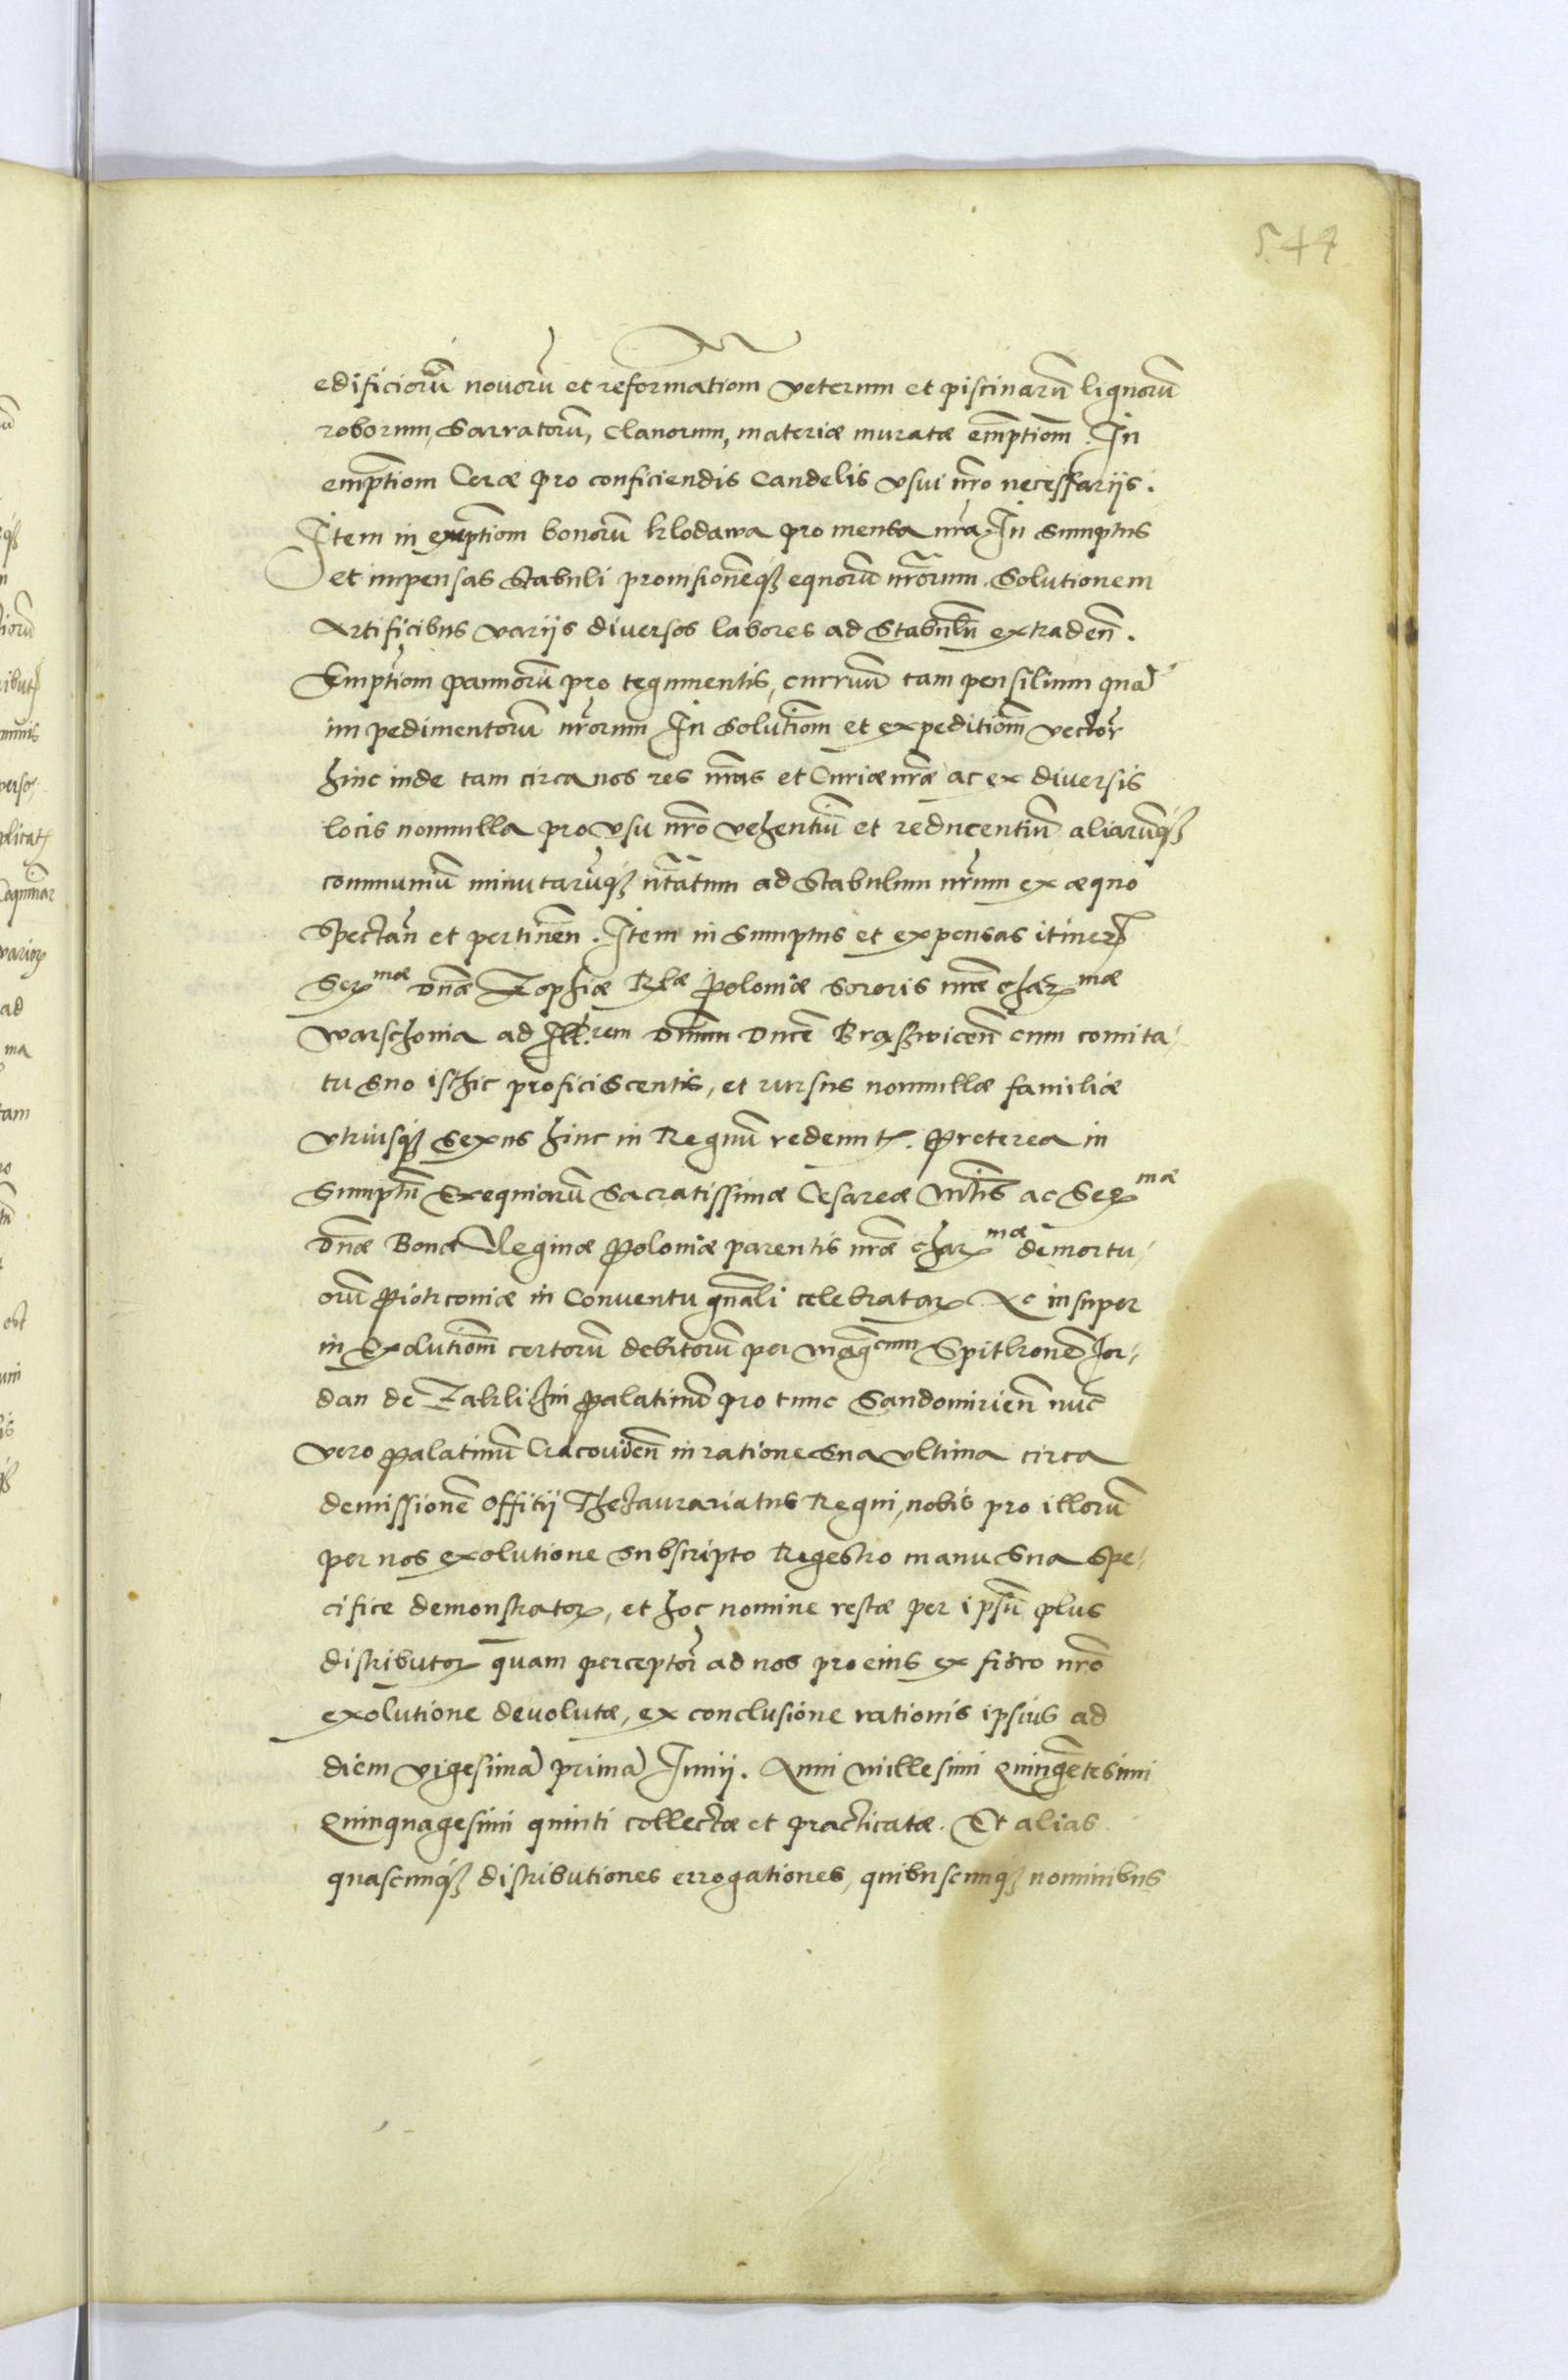 544
edificiorū novorū et reformationī veterum et piscinarū lignorū
roborum, Sarratorū, clanorum, materiæ muratæ emptionī. In
emptionī Ceræ pro conficiendis Candelis vsui nrō necessariis.
Item in emptionī bonorū klodawa pro mensa nrā. In sumptus
et impensas Stabuli provisionēqȝ equorū nrōrum. Solutionem
Artificibus variis diversos labores ad Stabulū extraden̄.
Emptionī pannorū pro tegumentis, curruū tam pensilium quā
impedimentorū nrōrum In Solutionī et expeditionī vector
hinc inde tam circa nos res nrās et Curiæ nræ ac ex diversis
locis nonnulla pro vsu nrō vehentiū et reducentiū aliarūqȝ
communiū minutarūqȝ ntātum ad Stabulum nrūm ex æquo
Spectan̄ et pertinen̄. Item in Sumptus et expensas itiner
Ser mæ dnæ Zophiæ Rlæ Poloniæ Sororis nræ char mæ
warschovia ad Ill. rem dnūm ducē Braszwicen̄ cum comita-
tu Suo isthic proficiscentis, et rursus nonnullæ familiæ
vtriusqȝ Sexus hinc in Regnū redeunt. Preterea in
Sumptū Exequiarū Sacratissimæ Cesareæ Mtis ac Ser mæ
dnæ Bonæ Reginæ Poloniæ parentis nræ char mæ demortu-
orū Piotrcoviæ in Conventu gnāli celebrator Ac insuper
in Exolutionī certorū debitorū per Mag cum Spitkonē Jor-
dan de Zaklichin Palatinū pro tunc Sandomirien̄ nūc
vero Palatinū Cracovien̄ in ratione Sua vltima circa
demissionē officii Thesaurariatus Regni, nobis pro illorū
per nos exolutione Subscripto Regestro manu Sua Spe-
cifice demonstrator, et hoc nomine restæ per ipsū plus
distributor quam perceptor ad nos pro eius ex fisco nrō
exolutione devolutæ, ex conclusione rationis ipsius ad
diem vigesimā primā Junii. Anni Millesimi Quingētesimi
Quinquagesimi quinti collectæ et practicatæ. Et alias
quascunqȝ distributiones errogationes, quibuscunqȝ nominibus